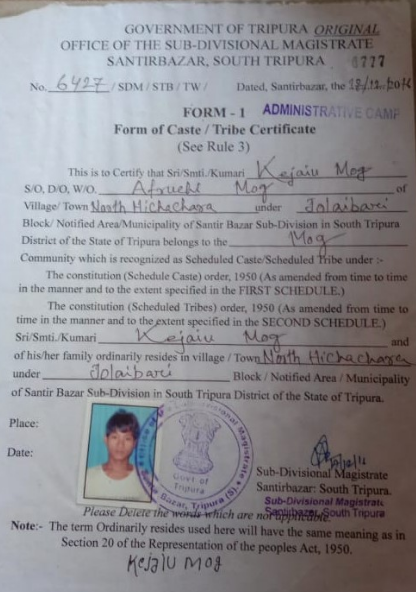 GOVERNMENT OF TRIPURA ORIGINAL
OFFICE OF THE SUB-DIVISIONAL MAGISTRATE
SANTIRBAZAR, SOUTH TRIPURA 6777
No. 6427 / SDM / STB / TW / Dated, Santirbazar, the
FORM - 1 ADMINISTRATIVE CAMP
Form of Caste / Tribe Certificate
(See Rule 3)
This is to Certify that Sri/Smti./Kumari Kejaiu Mog
S/O, D/O, W/O. Afruchi Mog of
Village/ Town North Hichachara under Jolaibari
Block/ Notified Area/Municipality of Santir Bazar Sub-Division in South Tripura
District of the State of Tripura belongs to the Mog
Community which is recognized as Scheduled Caste/Scheduled Tribe under :-
The constitution (Schedule Caste) order, 1950 (As amended from time to time
in the manner and to the extent specified in the FIRST SCHEDULE.)
The constitution (Scheduled Tribes) order, 1950 (As amended from time to
time in the manner and to the extent specified in the SECOND SCHEDULE.)
Sri/Smti./Kumari Kejaiu Mog and
of his/her family ordinarily resides in village / Town North Hichachara
under Jolaibari Block / Notified Area / Municipality
of Santir Bazar Sub-Division in South Tripura District of the State of Tripura.
Place:
Date:
Govt of
Tripura
Sub-Divisional Magistrate
Santirbazar: South Tripura.
Sub-Divisional Magistrate
Santirbazar, South Tripura
Please Delete the words which are not applicable.
Note:- The term Ordinarily resides used here will have the same meaning as in
Section 20 of the Representation of the peoples Act, 1950.
Kejaiu Mog